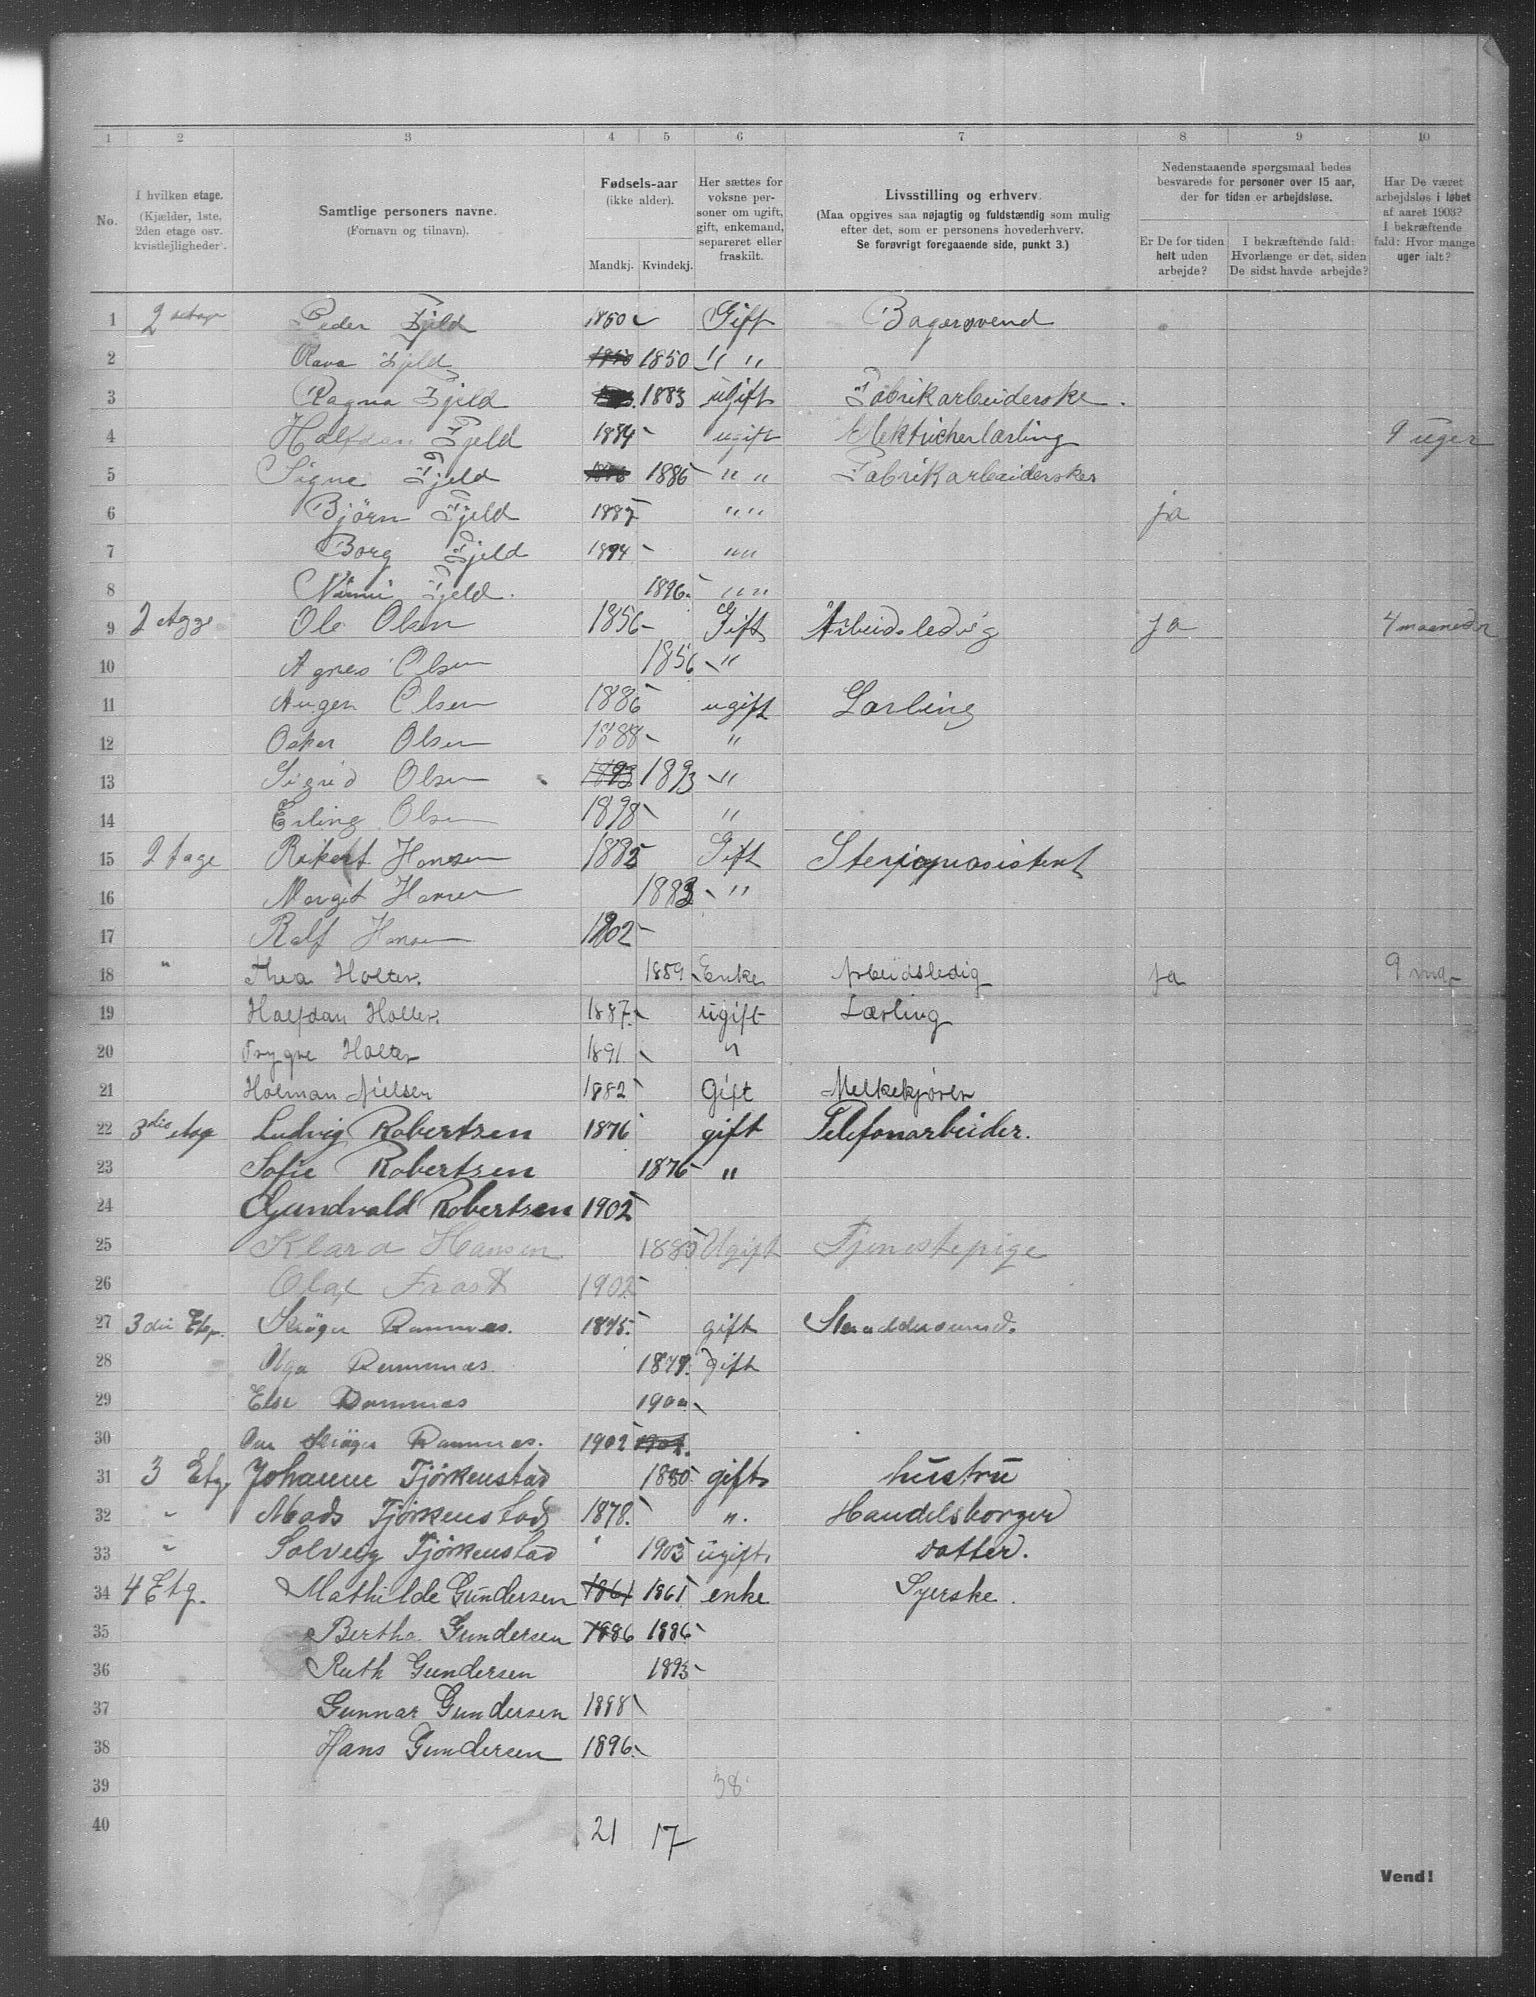 1 2 3 4 5 6 7 8 9 10
No.
I hvilken etage. (Kjælder, 1ste, 2den etage osv. kvistlejligheder).
Samtlige personers navne. (Fornavn og tilnavn).
Fødsels-aar (ikke alder).
Mandkj. Kvindekj.
Her sættes for voksne personer om ugift, gift, enkemand, separeret eller fraskilt.
Livsstilling og erhverv. (Maa opgives saa nøjagtig og fuldstændig som mulig efter det, som er personens hovederhverv. Se forøvrigt foregaaende side, punkt 3.)
Nedenstaaende spørgsmaal bedes besvarede for personer over 15 aar, der for tiden er arbejdsløse.
Er De for tiden helt uden arbejde?
I bekræftende fald: Hvorlænge er det, siden De sidst havde arbejde?
Har De været arbejdsløs i løbet af aaret 1903? I bekræftende fald: Hvor mange uger ialt?
1 2 etage Peder Fjeld 1850 Gift Bagersvend
2 Fjeld 1850 " "
3 Ragna Fjeld 1883 ugift Fabrikarbeiderske.
4 Halfdan Fjeld 1884 ugift Elektricherlærling 9 uger
5 Signe Fjeld 1886 " " Fabrikarbeiderske
6 Björn Fjeld 1887 " " ja
7 Borg Fjeld 1894 " "
8 Fjeld. 1896. " "
9 2 Olsen 1856 Gift Arbeidsledig ja 4 maaneder
10 Agnes Olsen 1856 "
11 Olsen 1886 ugift Lærling
12 Oskar Olsen 1888 "
13 Sigrid Olsen 1893 1893 "
14 Erling Olsen 1898 "
15 2 Hansen Gift
16 Margit Hansen 1883 "
17 Ralf Hansen 1902
18 " Thea Holter. 1859 Enke Arbeidsledig ja 9 md
19 Halfdan Holter. 1887. ugift Lærling
20 Trygve Holter 1891. "
21 Holman Nielsen 1882 Gift Melkekjører
22 3die etag Ludvig Robertsen 1876 gift Telefonarbeider.
23 Sofie Robertsen 1876 "
24 Gundvald Robertsen 1902
25 Klara Hansen Ugift Tjenestepige
26 Olaf Frost 1902
27 3die Etg. Krøger Rammes. 1875. gift
28 Olga Rammes. gift
29 Else Rammes
30 Krøger Rammes. 1902
31 3 Etg. Johanne Tjørkenstad 1880 gift hustru
32 " Mads Tjørkenstad 1878. ". Handelsborger
33 " Solveig Tjørkenstad 1903 ugift. datter.
34 4 Etg. Mathilde Gundersen 1861 1861 enke Syerske.
35 Bertha Gundersen 1886 1886
36 Ruth Gundersen 1893
37 Gunnar Gundersen 1898
38 Hans Gundersen 1896
39 38
40 21 17
Vend!